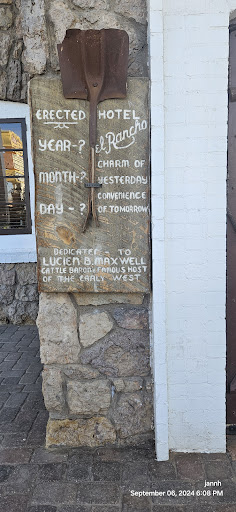 ERECTED HOTEL
El Rancho
YEAR-?
CHARM OF
MONTH-? YESTERDAY
CONVENIENCE
DAY-? OF TOMORROW
DEDICATED - TO
LUCIEN B. MAXWELL
CATTLE BARON & FAMOUS HOST
OF THE EARLY-WEST
jannh
September 06, 2024 6:08 PM